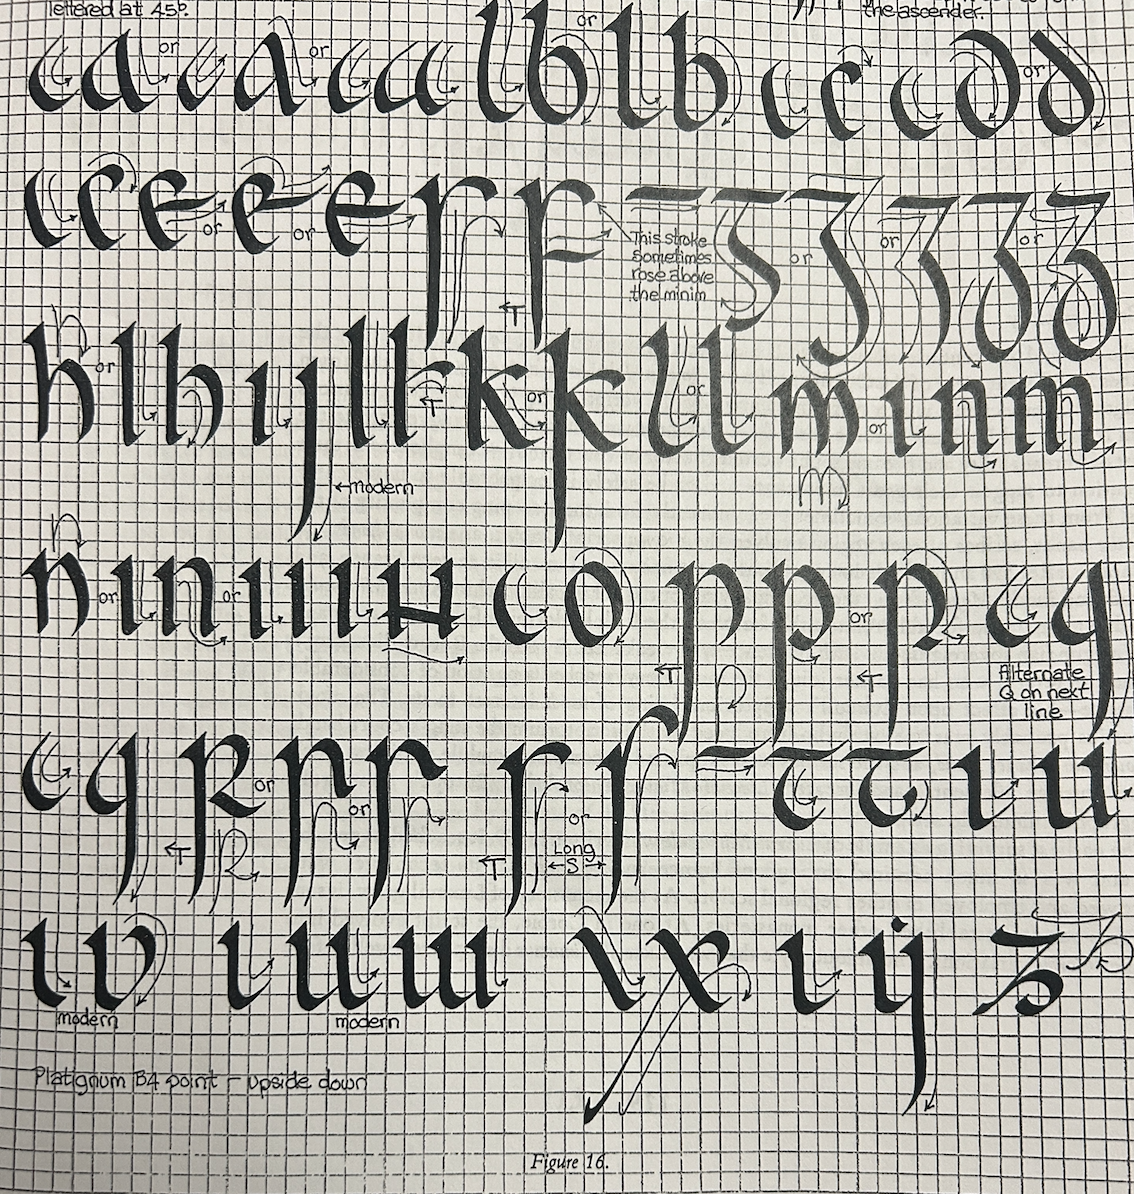 lettered at 45°.
the ascender.
a or a or a b or b c d or d
e or e or e f This stroke sometimes rose above the minim g or g or g or g
h or h i j k or k l or l m or m
←modern
n or n or n o p or p q
Alternate Q on next line
q r or r or r s or Long S t u
v w x y z
modern modern
Platignum B4 point – upside down
Figure 16.